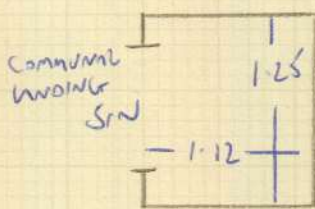 COMMUNAL
LANDING
1.25
1.12